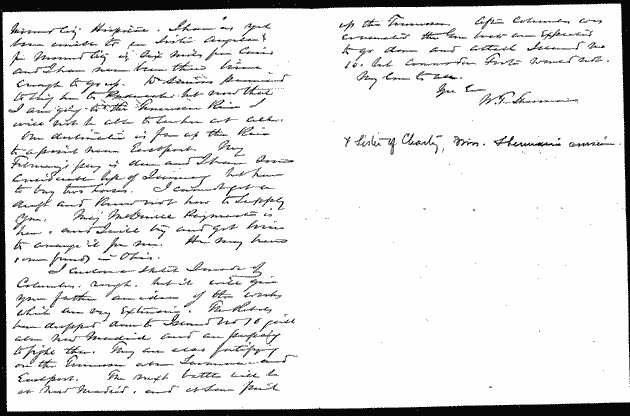 Mound City Hospital. I have as yet
been unable to see Sister Angela x
for Mound City is six miles from Cairo
and I have never been there
enough to go up. promised
to bring her to Paducah but now that
I am going to the Tennessee River I
will not be able to see her at all.
Our destination is far up the River
to a point near Eastport. My
February pay is due and I have some
considerable left of January but have
to buy two horses. I cannot get a
draft and know not how to supply
you. Maj McDowell Paymaster is
here, and I will try and get him
to arrange it for me. He may have
some funds in Ohio.
I enclose a sketch I made of
Columbus, rough, but it will give
your father an idea of the works
which are very extensive. The Rebels
have dropped down to Island No 10
New Madrid and are preparing
to fight there. They are also fortifying
on the Tennessee above Savannah and
Eastport. The next battle will be
at New Madrid, and at same
up the Tennessee. After Columbus was
evacuated the Gun boats are expected
to go down and attack Island No
10, but Commodore Foote would not.
My love to all.
Yrs Ever
W. T. Sherman
x Sister of Charity, Mrs. Sherman's cousin.